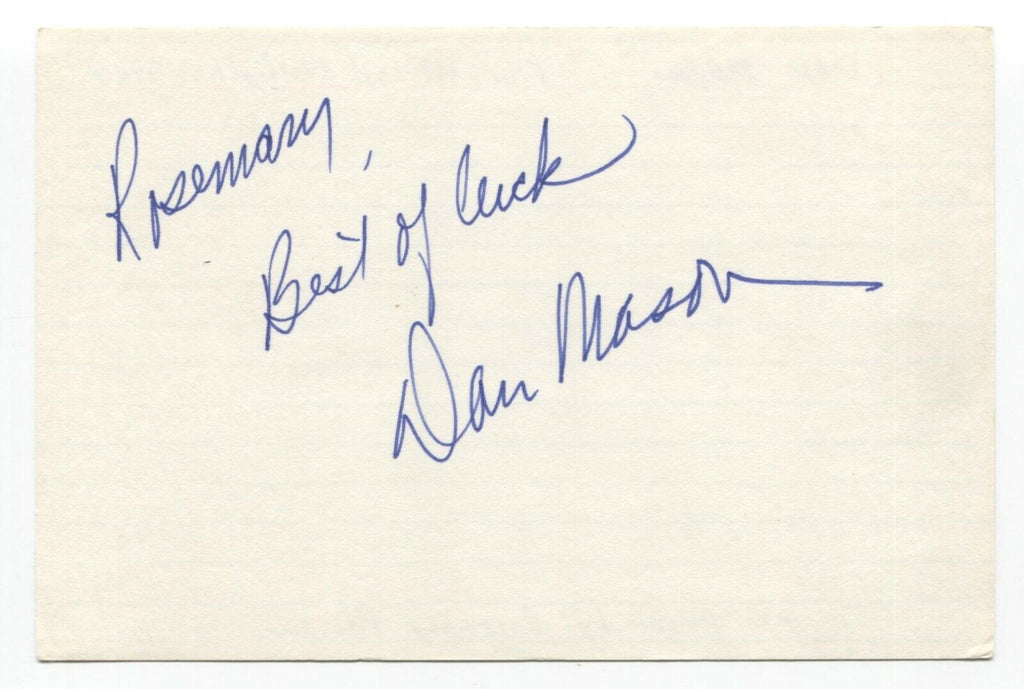 Rosemary,
Best of luck
Dan Mason